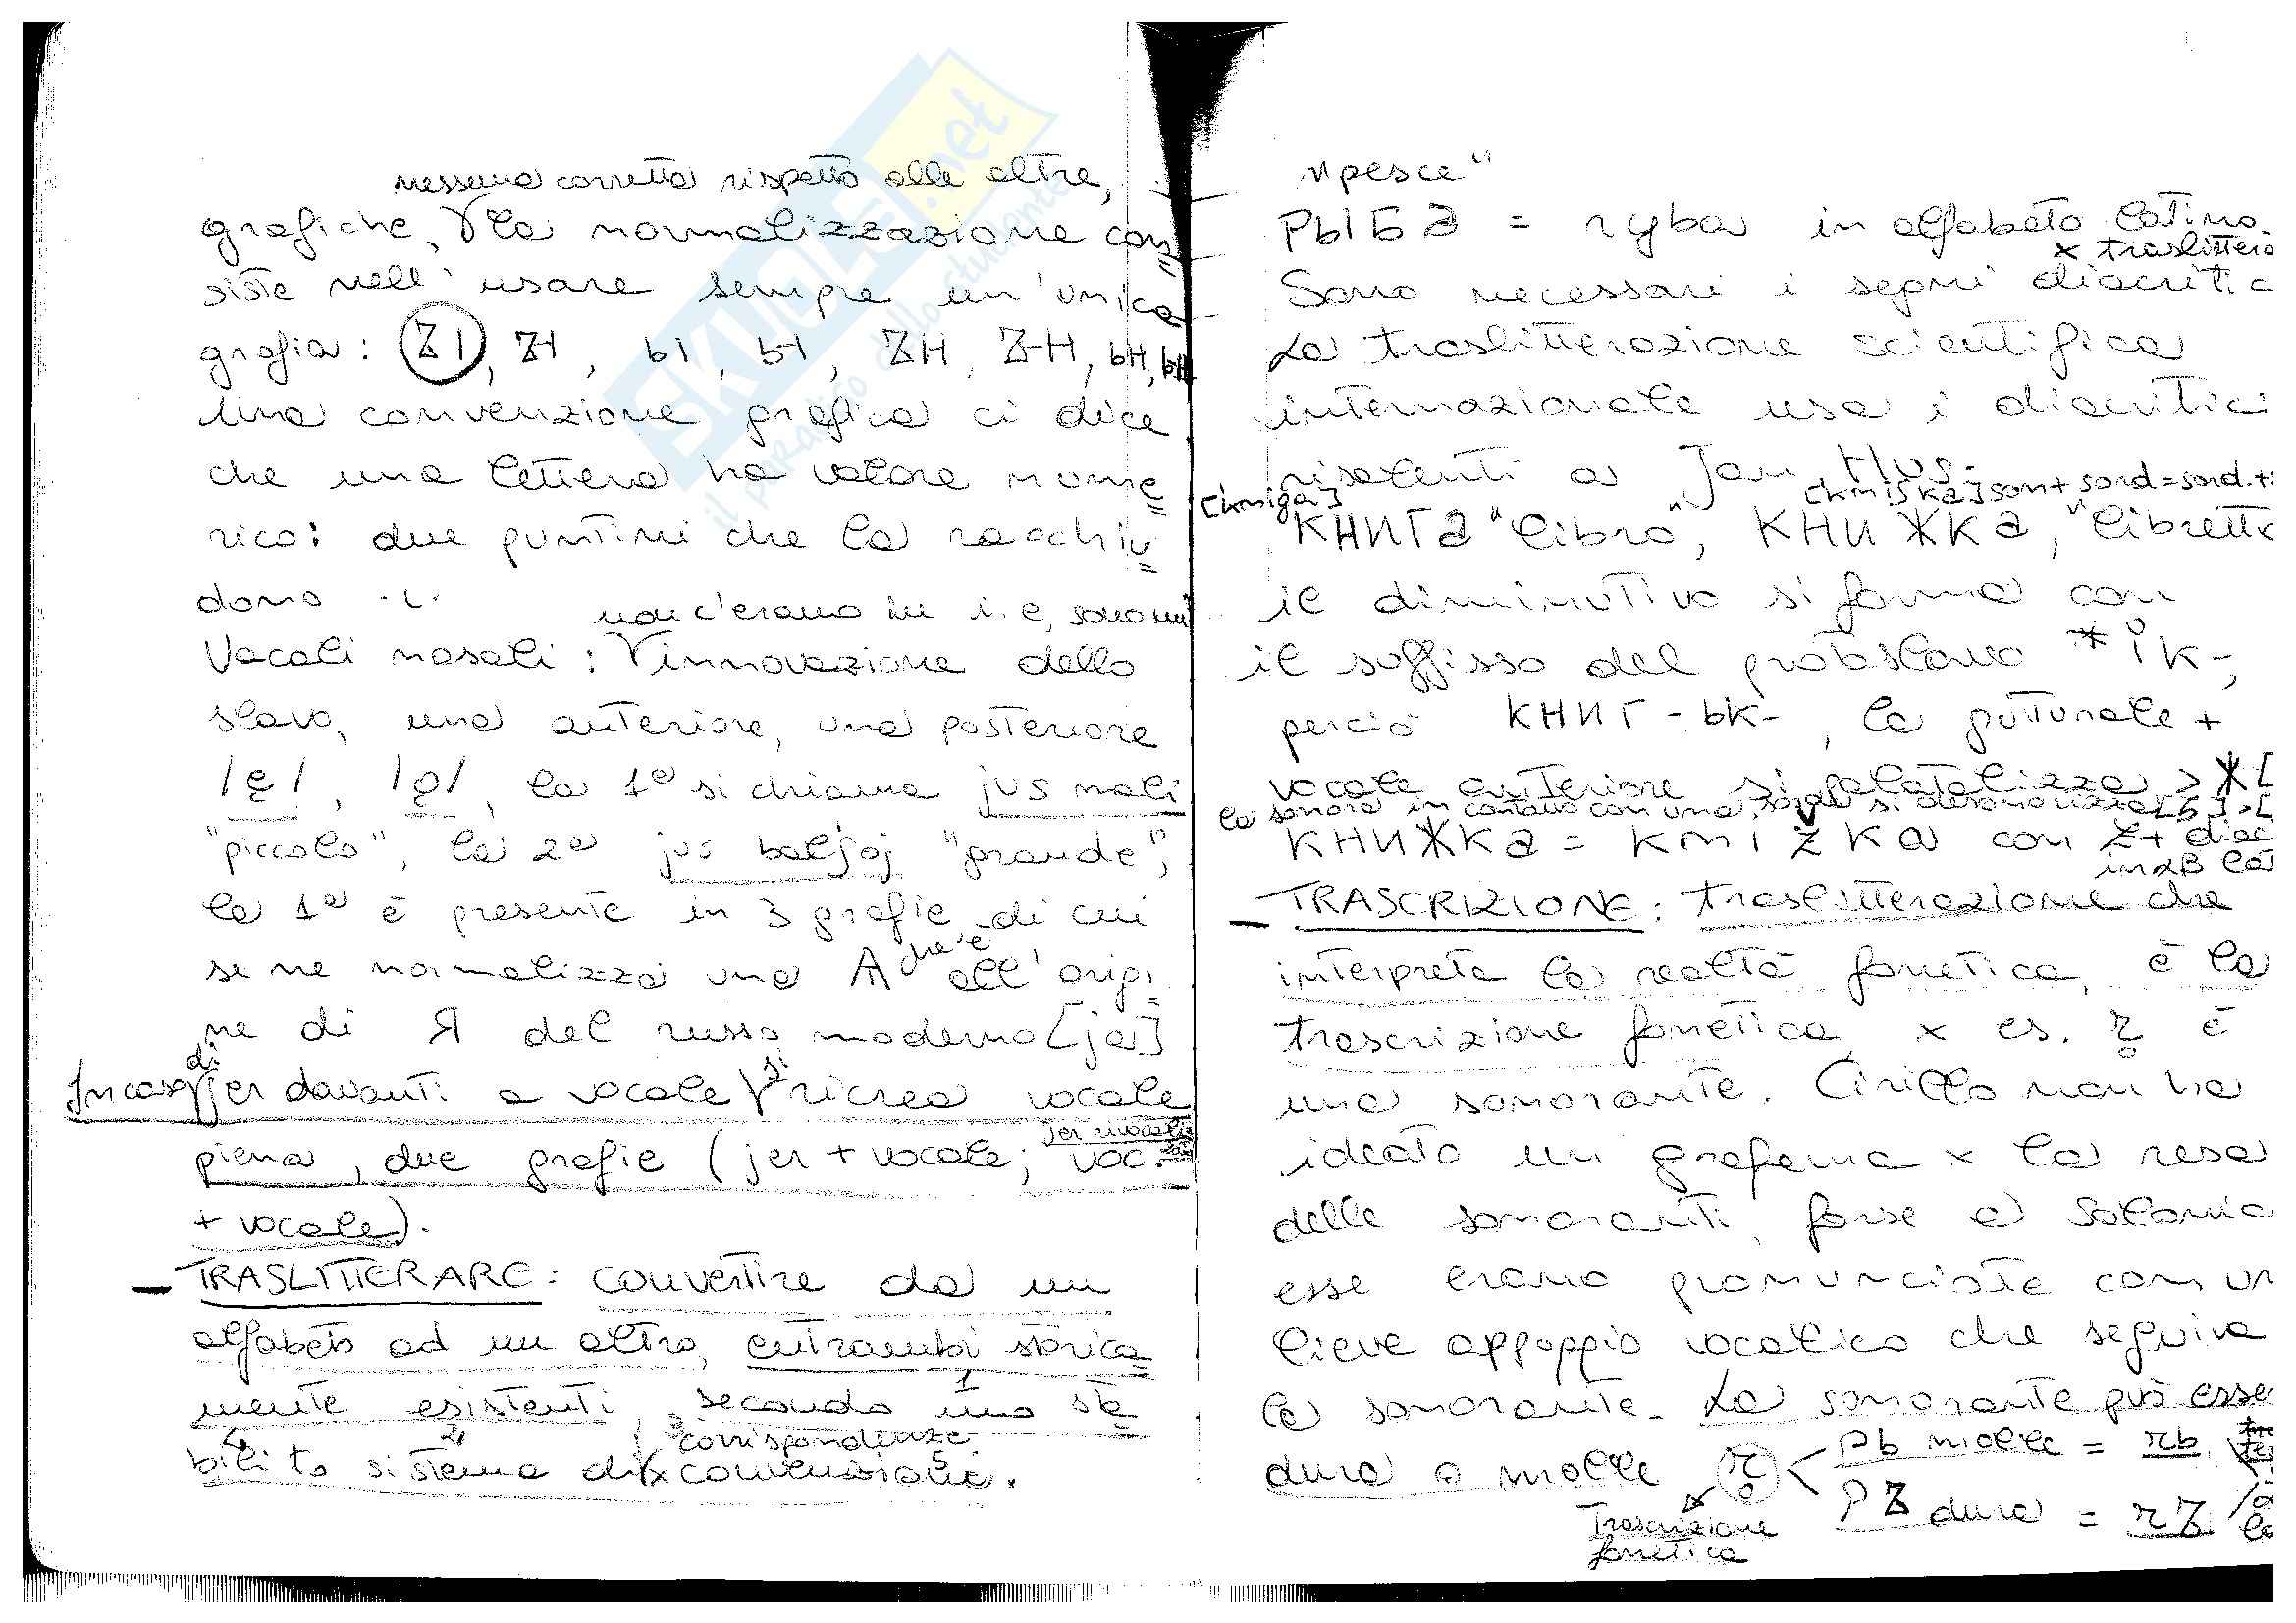 nessuna corretta rispetto alle altre,
grafiche, la normalizzazione con
siste nell'usare sempre un'unica
grafia: ꙀI, ꙀI, ьI, ьI, ꙀH, ꙀH, ьH, ьH
Una convenzione grafica ci dice
che una lettera ha valore nume
rico: due puntini che la racchiu
dono ·ι·
non c'erano in i.e, sono un'
Vocali nasali: innovazione dello
slavo, una anteriore, una posteriore
/ę/, /ǫ/, la 1ª si chiama jus mali
"piccolo", la 2ª jus bol'šoj "grande",
la 1ª è presente in 3 grafie di cui
se ne normalizza una Ѧ che è all'origi
ne di Я del russo moderno [ja]
In caso di jer davanti a vocale si ricrea vocale
piena, due grafie (jer + vocale; voc.
+ vocale).
– TRASLITTERARE: convertire da un
alfabeto ad un altro, entrambi storica
mente esistenti, secondo uno sta
bilito sistema di corrispondenze
convenzione.
SKUOLA.net
il paradiso dello studente
"pesce"
РЫБА = ryba in alfabeto latino.
x traslittera
Sono necessari i segni diacritic
La traslitterazione scientifica
internazionale usa i diacritici
risalenti a Jan Hus.
[kniga] [kniška] son + sord = sord. +
КНИГА "libro", КНИЖКА, "libretto
il diminutivo si forma con
il suffisso del protoslavo *ĭk-,
perciò КНИГ-ЬК-, la gutturale +
vocale anteriore si palatalizza > Ж[
la sonora in contatto con una sorda si desonorizza
КНИЖКА = KNIŽKA con z + diac
in αβ lat
– TRASCRIZIONE: traslitterazione che
interpreta la realtà fonetica, è la
trascrizione fonetica, x es. r̥ è
una sonorante. Cirillo non ha
ideato un grafema x la resa
delle sonoranti, forse a Salonic
esse erano pronunciate con un
lieve appoggio vocalico che seguiva
la sonorante. La sonorante può esse
dura o molle r̥ < Рь molle = rь
РЪ dura = rЪ
Trascrizione
fonetica